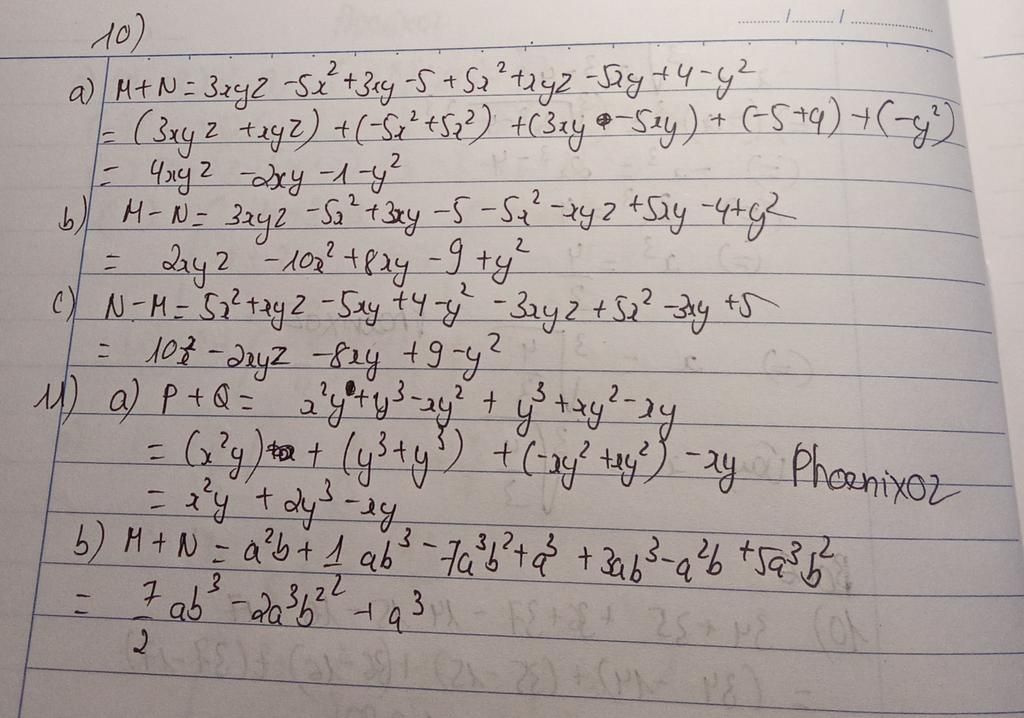 10)
a) M+N = 3xyz -5x²+3xy -5 + 5x²+xyz -5xy+4-y²
= (3xyz +xyz) +(-5x²+5x²) +(3xy -5xy) + (-5+4) +(-y²)
= 4xyz -2xy -1-y²
b) M-N = 3xyz -5x²+3xy -5 -5x² -xyz +5xy -4+y²
= 2xyz -10x²+8xy -9 +y²
c) N-M = 5x²+xyz -5xy +4-y² -3xyz +5x² -3xy +5
= 10x² -2xyz -8xy +9-y²
11) a) P+Q = x²y+y³-xy² + y³+xy²-xy
= (x²y) + (y³+y³) +(-xy²+xy²) -xy Phoenixoz
= x²y + 2y³ -xy
b) M+N = a²b+1 ab³ -7a³b²+a³ +3ab³-a²b +5a³b²
= 7/2 ab³ -2a³b² +a³